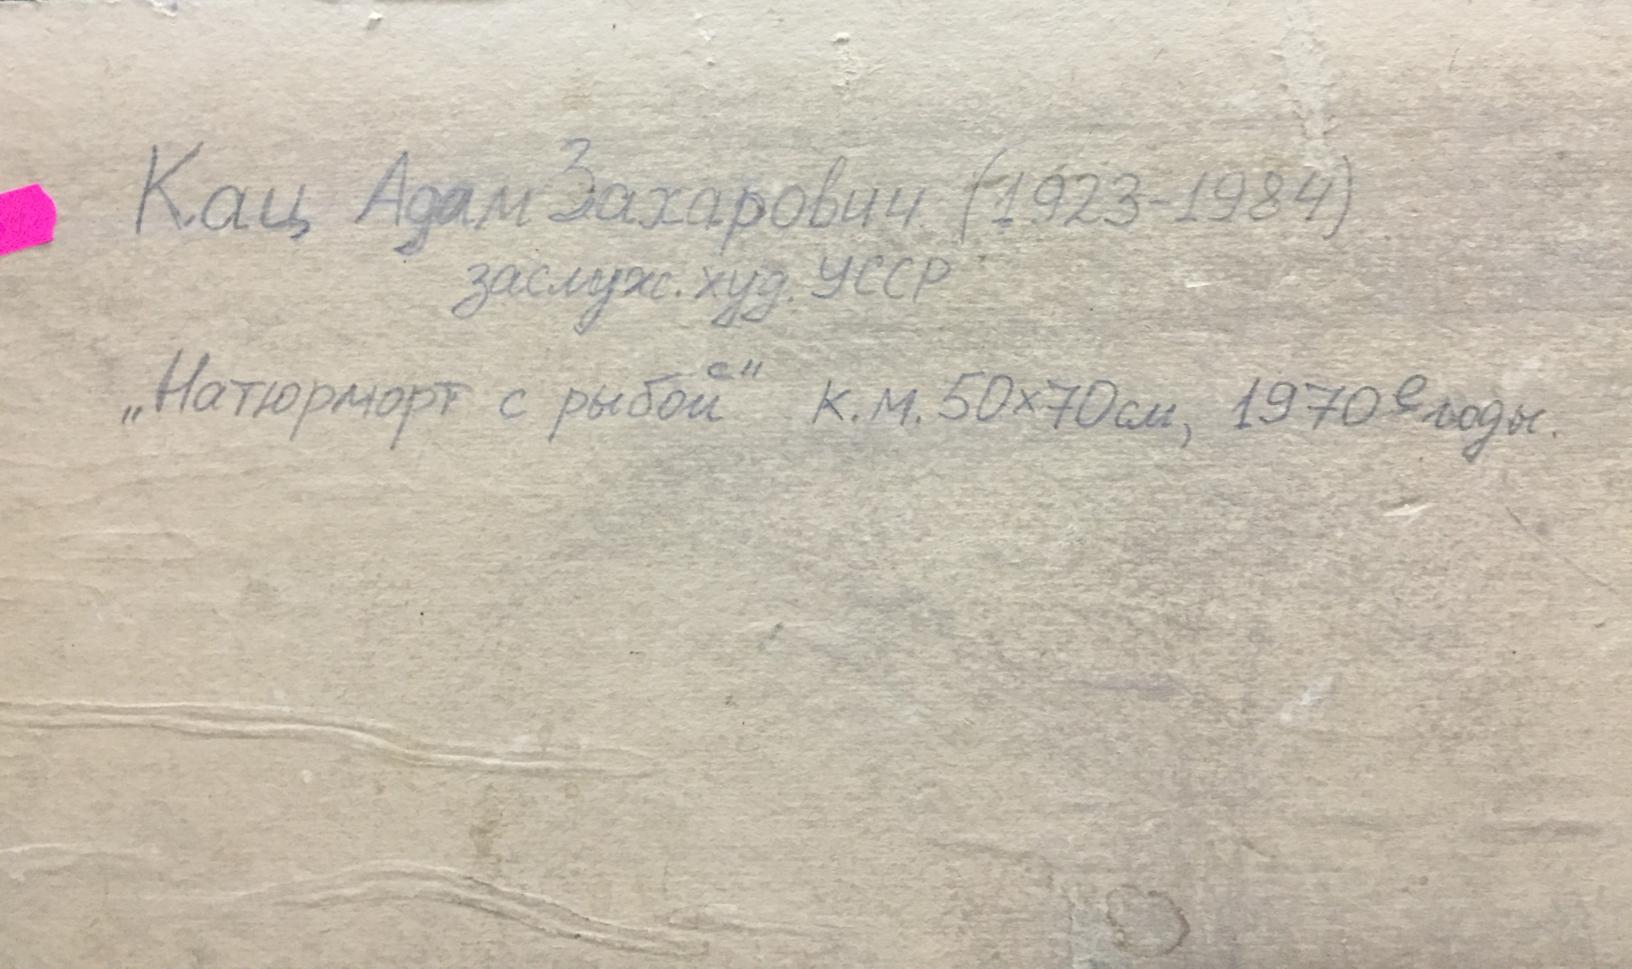 Кац Адам Захарович (1923-1984)
заслуж. худ. УССР
„Натюрморт с рыбой" к.м. 50х70см, 1970е годы.